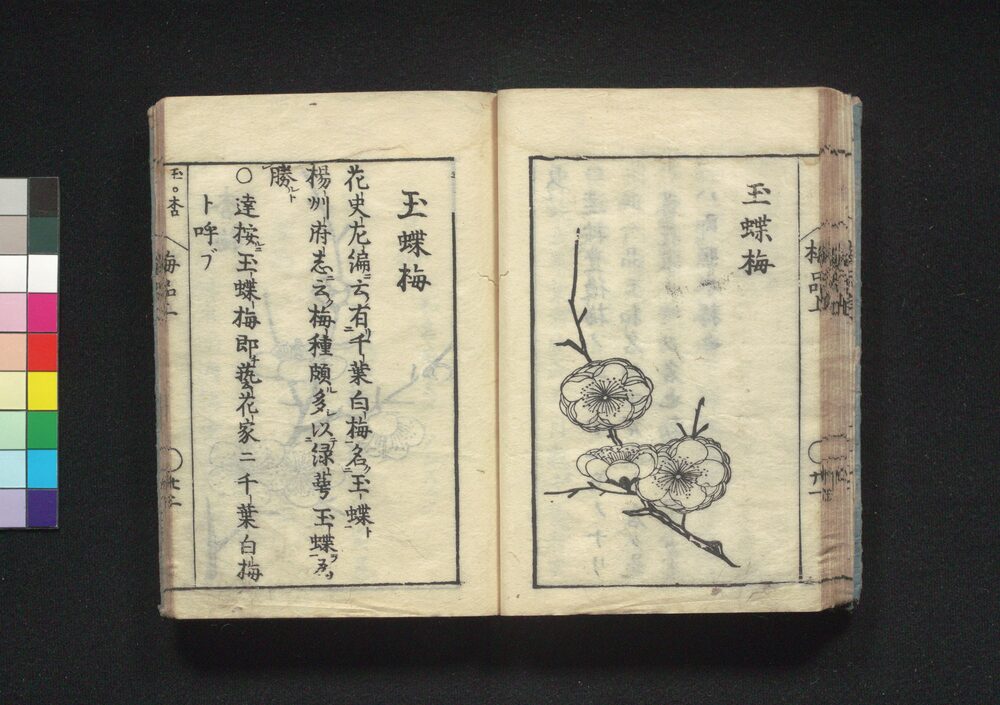 玉蝶梅
梅品上
廿一
玉蝶梅
花史左編云有千葉白梅名玉蝶ト
楊州府志云梅種頗多以緑萼玉蝶為
勝ルト
○達按ルニ玉蝶梅即チ藝花家ニ千葉白梅
ト呼ブ
玉。杏
梅品上
廿二